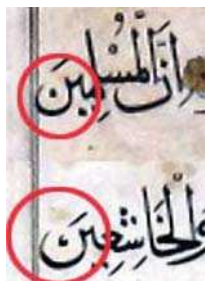 اِنَّ الْمُسْلِمِينَ
وَالْخَاشِعِينَ